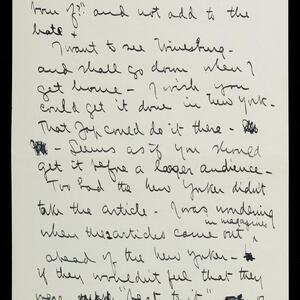 from it?" and not add to the
hate +
I want to see Winesburg -
and shall go down when I
get home - I wish you
could get it done in New York -
That Jap could do it there -
- Seems as if you should
get it before a larger audience -
Too bad the New Yorker didn't
take the article - I was wondering
in magazines
when these articles come out
ahead of the New Yorker -
if they wouldn't feel that they
were "beat to it"